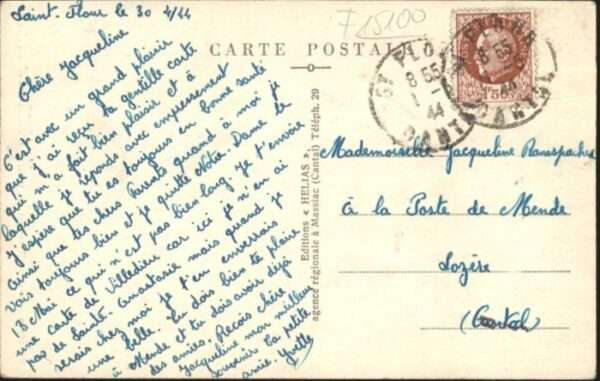 Saint. Flour le 30 4/44
Chère Jacqueline
C'est avec un grand plaisir
que j'ai reçu ta gentille carte
qui m'a fait bien plaisir et à
laquelle je réponds avec empressement
J'espère que tu es toujours en bonne santé
ainsi que tes chers Parents quand à moi je
vais toujours bien et je quitte Notre. Dame le
13 Mai ce qui n'est pas bien long. je t'envoie
une carte de Villedieu car ici je n'en ai
pas de Sainte. Anastasie mais quand je
serais chez moi je t'en enverrais
une belle. Tu dois bien te plaire
à Mende et tu dois avoir déjà
des amies. Reçois chère
Jacqueline mon meilleur
souvenir ta petite
amie. Yvette
F 15100
CARTE POSTALE
Editions « HELIAS ».
agence régionale à Massiac (Cantal) Téléph. 29
ST FLOUR
8 55
1 -
44
CANTAL
8 55
CANTAL
1F50
Mademoiselle Jacqueline
à la Poste de Mende
Lozère
(Cantal)